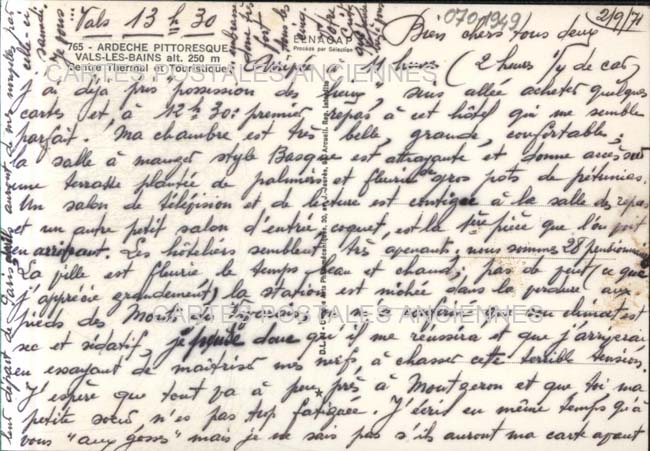 Vals 13h30
2/9/71
Bien chers tous deux
765 - ARDECHE PITTORESQUE
VALS-LES-BAINS alt. 250 m
Centre Thermal et Touristique
Procédé par Sélection
07011949
CARTES POSTALES ANCIENNES
à 11 heures (2 heures ½ de car)
j'ai déjà pris possession des lieux, suis allée acheter quelques
cartes et, à 12h30: premier repas à cet hôtel qui me semble
parfait. Ma chambre est très belle, grande, confortable,
la salle à manger style Basque est attrayante et donne accès sur
une terrasse plantée de palmiers et fleurie gros pots de pétunias.
Un salon de télévision et de lecture est contiguë à la salle des repas
et un autre petit salon d'entrée, coquet, est la 1ère pièce que l'on voit
en arrivant. Les hôteliers semblent très avenants. nous sommes 28 pensionnaires
La ville est fleurie le temps beau et chaud, pas de vent (ce que
j'apprécie grandement) la station est nichée dans la verdure aux
pieds des Monts climat est
sec et sédatif, je pense donc qu'il me réussira et que j'arriverai
en essayant de maîtriser mes nerfs à chasser cette terrible tension.
J'espère que tout va à peu près à Montgeron et que toi ma
petite soeur n'es pas trop fatiguée. J'écris en même temps qu'à
vous "aux gosses" mais je ne sais pas s'ils auront ma carte avant
leur départ de Paris auront de mes nouvelles par
celle-ci
samedi.
CARTES POSTALES ANCIENNES